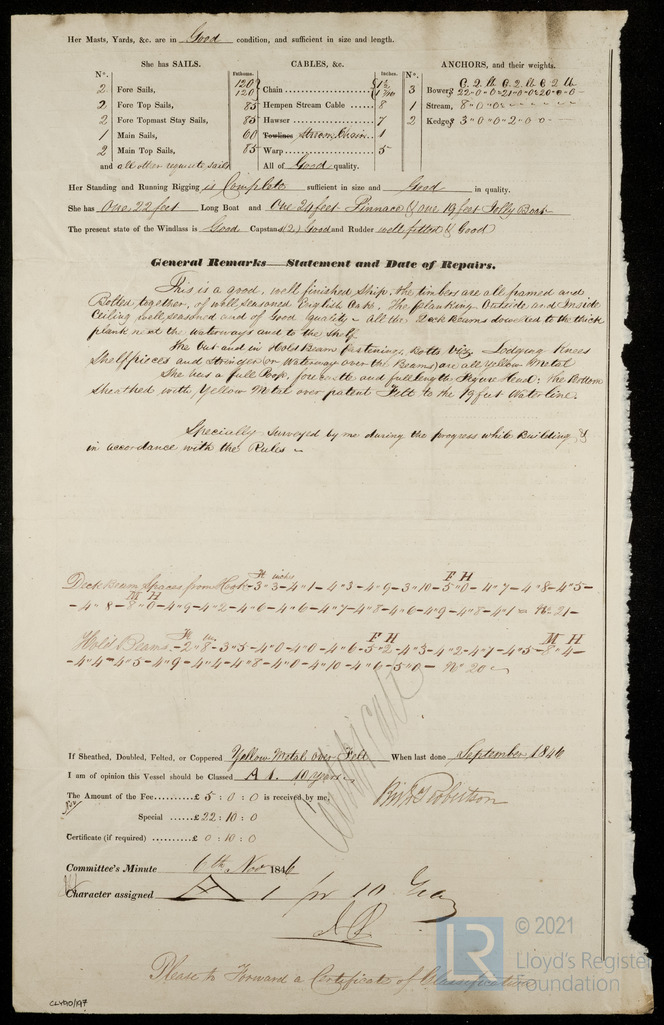 Her Masts, Yards, &c. are in Good condition, and sufficient in size and length.
She has SAILS.
N°.
2 Fore Sails,
2 Fore Top Sails,
2 Fore Topmast Stay Sails,
1 Main Sails,
2 Main Top Sails,
and all other requisite sails
CABLES, &c.
Fathoms. Inches.
120 120 Chain 1 1/2
85 Hempen Stream Cable 8
85 Hawser 7
60 Towlines Stream Chain 1
85 Warp 5
All of Good quality.
ANCHORS, and their weights.
N°. C. Q. lb C. Q. lb C Q lb
3 Bowers 22-0-0 21-0-0 20-0-0
1 Stream, 8"0"0
2 Kedges 3"0"0 2"0"0
Her Standing and Running Rigging is Complete sufficient in size and Good in quality.
She has One 22 feet Long Boat and One 24 feet Pinnace & one 19 feet Jolly Boat
The present state of the Windlass is Good Capstans (2) Good and Rudder well fitted & Good
General Remarks—Statement and Date of Repairs.
This is a good, well finished Ship, the timbers are all framed and
Bolted together, of well seasoned English Oak. The planking Outside and Inside
Ceiling well seasoned and of Good quality - all the Deck Beams dowelled to the thick
plank next the waterways and to the shelf
The but and in Hold Beam fastenings, Bolts viz. Lodging Knees
Shelfpieces and Stringer (or Waterway over the Beams) are all Yellow Metal
She has a full Poop, forecastle and full length Figure Head: the Bottom
sheathed with Yellow Metal over patent Felt to the 19 feet Waterline.
Specially surveyed by me during the progress while Building, &
in accordance with the Rules -
Ft inches F H
Deck Beam Spaces from -3"3-4"1-4"3-4"9-3"10-5"0-4"7-4"8-4"5-
M H
-4"8-8"0-4"9-4"2-4"6-4"6-4"7-4"8-4"6-4"9-4"8-4"1 = No 21-
Ft in. F H M H
Hold Beams.-2"8-3"5-4"0-4"0-4"6-5"2-4"3-4"2-4"7-4"5-8"4-
-4"4-4"5-4"9-4"4-4"8-4"0-4"10-4"6-5"0- No 20
Certificate
If Sheathed, Doubled, Felted, or Coppered Yellow Metal over Felt When last done September 1846
I am of opinion this Vessel should be Classed A 1. 10 years.
The Amount of the Fee..........£ 5 : 0 : 0 is received by me,
Robertson
Special ......£ 22 : 10 : 0
Certificate (if required) ....£ 0 : 10 : 0
Committee's Minute 6th Nov 1846
Character assigned A 1 for 10 Years
Please to Forward a Certificate of Classification
CLYD10/197
© 2021
LR
Lloyd's Register
Foundation